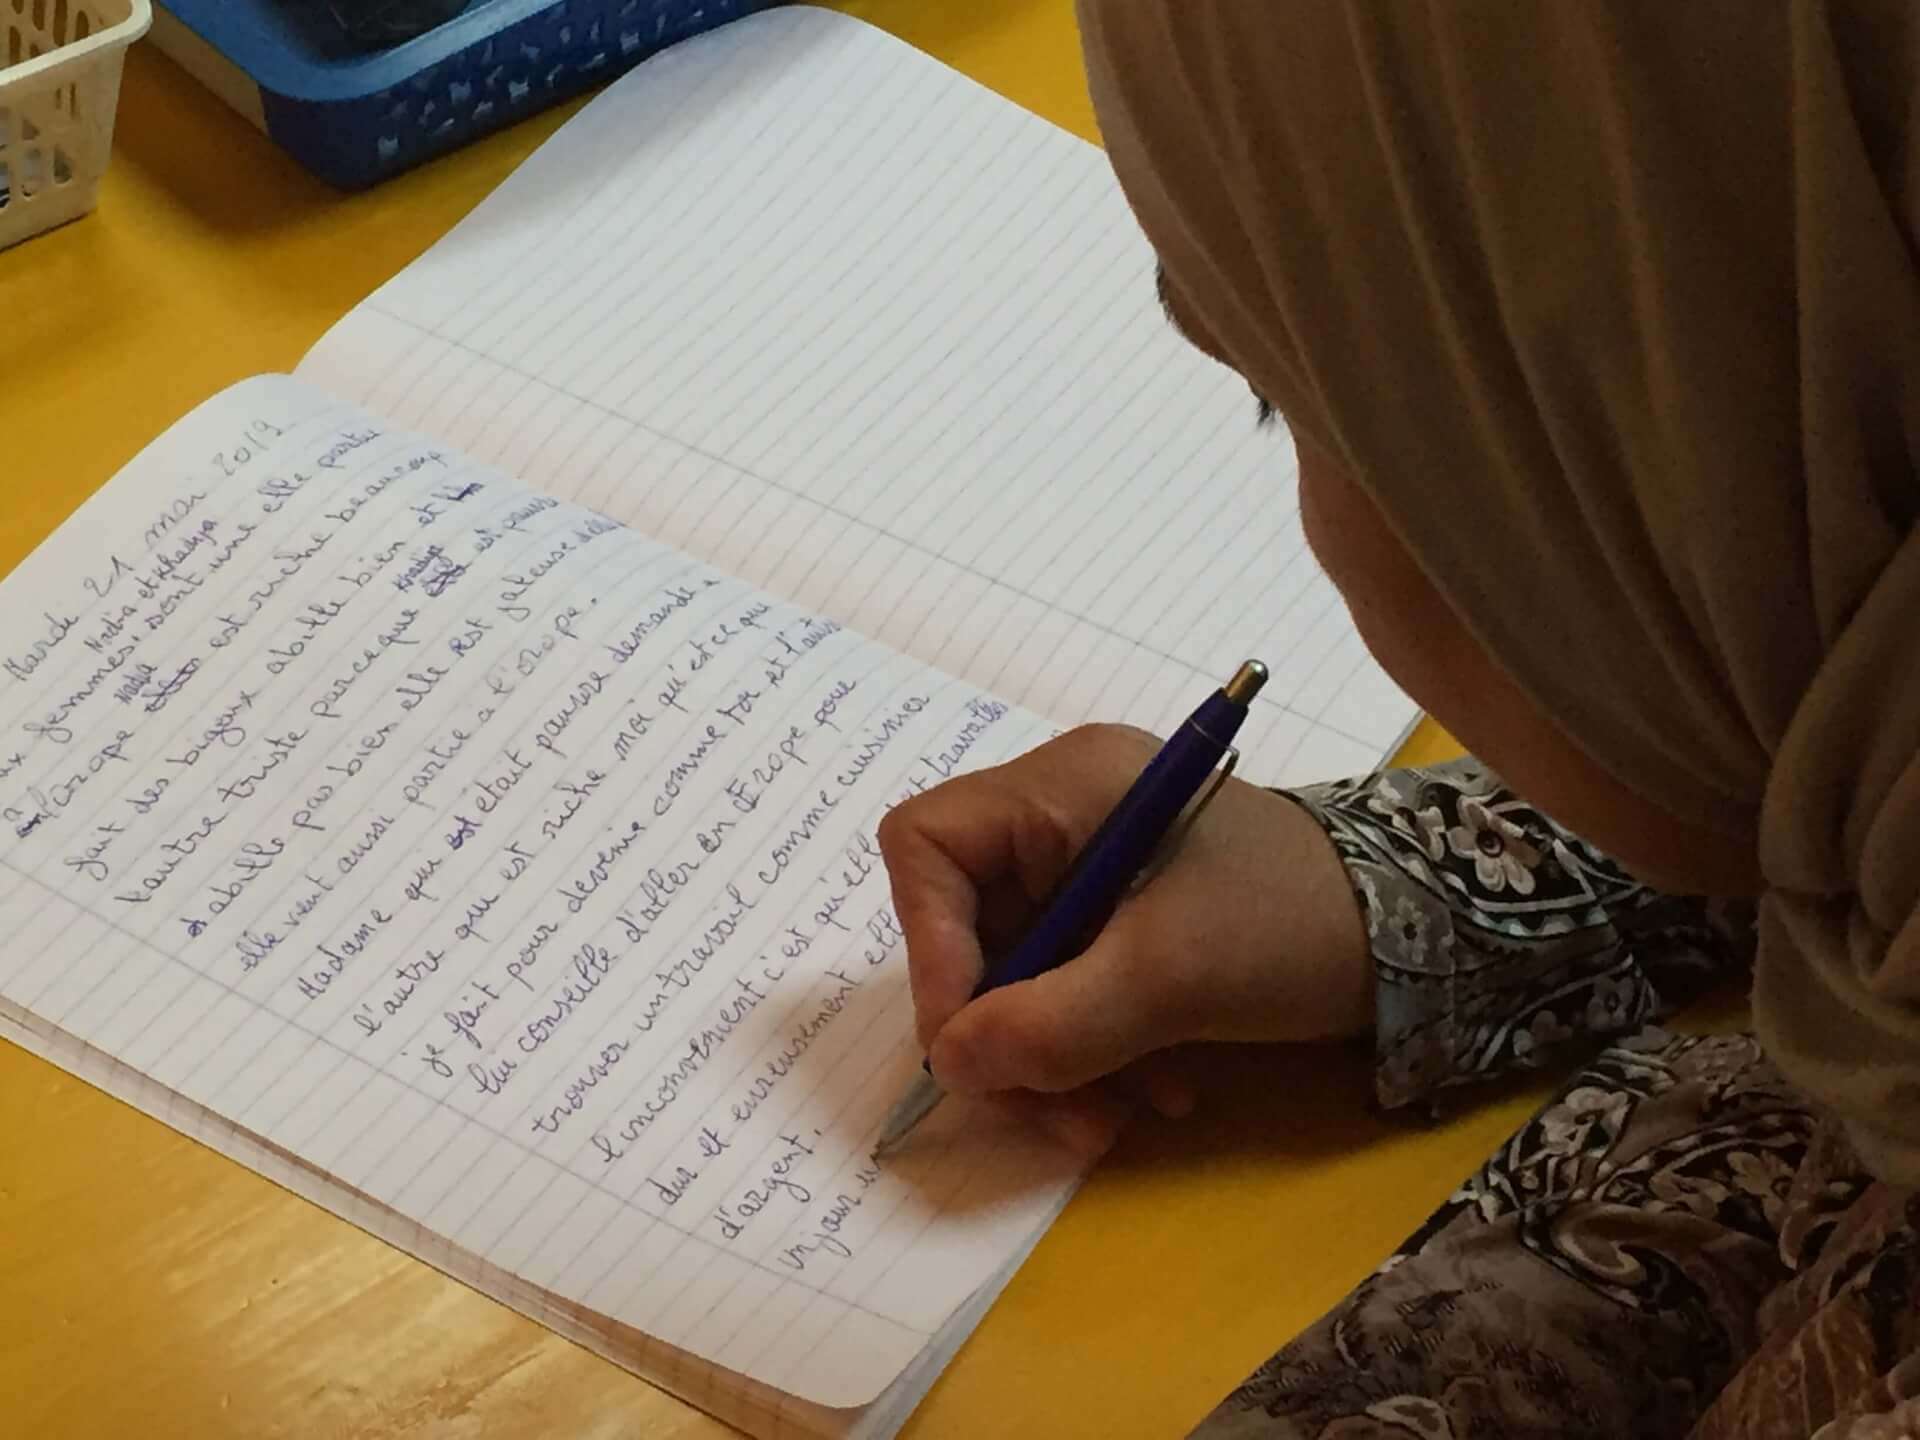 Mardi 21 mai 2019
Nadia et Khadija
femmes, sont une elle partie
Nadia
à l'orope est riche beaucoup
fait des bigoux abille bien et
l'autre triste parceque Khadija est pauvre
et abille pas bien elle est jaleuse d'elle
elle vient aussi partie a l'orope.
Madame qui était pauvre demande a
l'autre qui est riche moi qu'est ce que
je fait pour devenir comme toi et l'autre
lui conseille d'aller en Erope pour
trouver un travail comme cuisinier
l'inconvenient c'est qu'elle travaille
dur et eureusement elle
d'argent.
un jour un